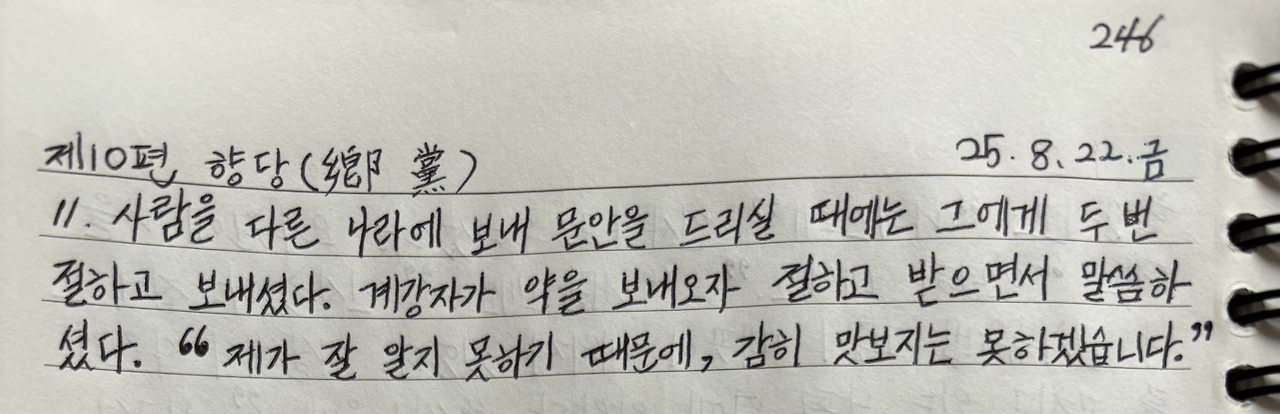 246
제10편 향당(鄕黨) 25. 8. 22. 금
11. 사람을 다른 나라에 보내 문안을 드리실 때에는 그에게 두 번
절하고 보내셨다. 계강자가 약을 보내오자 절하고 받으면서 말씀하
셨다. “제가 잘 알지 못하기 때문에, 감히 맛보지는 못하겠습니다.”